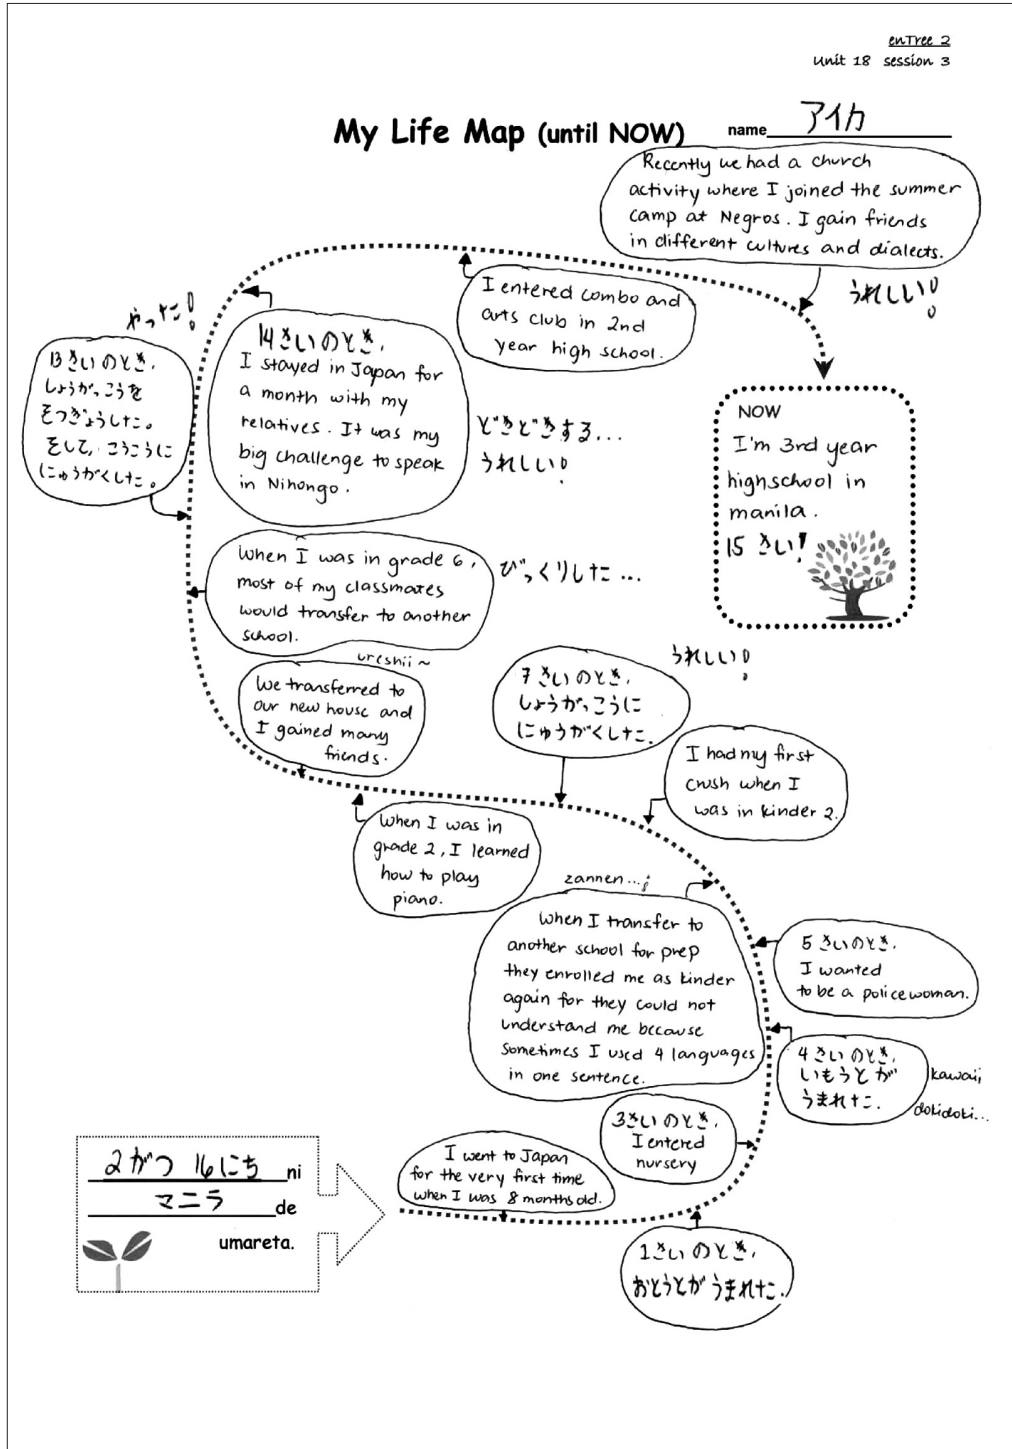 enTree 2
Unit 18 session 3
My Life Map (until NOW)
name アイカ
Recently we had a church
activity where I joined the summer
camp at Negros. I gain friends
in different cultures and dialects.
うれしい!
I entered combo and
arts club in 2nd
year high school.
やった!
13さいのとき、
しょうがっこうを
そつぎょうした。
そして、こうこうに
にゅうがくした。
14さいのとき、
I stayed in Japan for
a month with my
relatives. It was my
big challenge to speak
in Nihongo.
どきどきする...
うれしい!
NOW
I'm 3rd year
highschool in
manila.
15 さい!
When I was in grade 6,
most of my classmates
would transfer to another
school.
びっくりした...
ureshii ~
We transferred to
our new house and
I gained many
friends.
7さいのとき、
しょうがっこうに
にゅうがくした.
うれしい!
I had my first
crush when I
was in kinder 2.
When I was in
grade 2, I learned
how to play
piano.
zannen...;
When I transfer to
another school for prep
they enrolled me as kinder
again for they could not
understand me because
sometimes I used 4 languages
in one sentence.
5さいのとき、
I wanted
to be a policewoman.
4さいのとき、
いもうとが
うまれた.
kawaii
dokidoki...
3さいのとき、
I entered
nursery
I went to Japan
for the very first time
when I was 8 months old.
1さいのとき、
おとうとがうまれた.
2がつ 16にち ni
マニラ de
umareta.